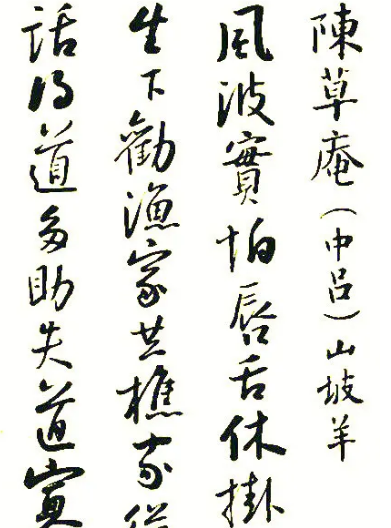 陳草庵（中呂）山坡羊
風波實怕唇舌休掛
生下勸漁家共樵家從
話得道多助失道寡